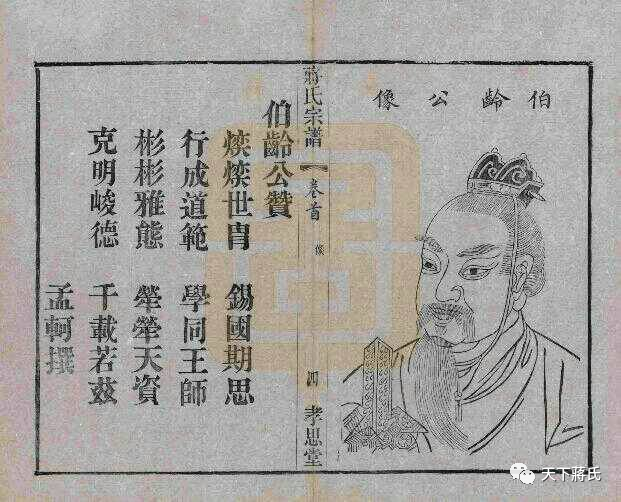 伯齡公像
蔣氏宗譜
卷首
像
四
孝思堂
伯齡公贊
煥煥世胄 錫國期思
行成道範 學同王師
彬彬雅態 犖犖天資
克明峻德 千載若茲
孟軻撰
天下蔣氏